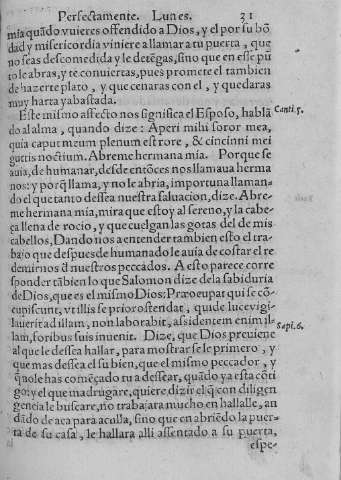 Perfectamente. Lunes. 21
mia quãdo vuieres offendido a Dios, y el por su bõ
dad y misericordia viniere a llamar a tu puerta, que
no seas descomedida y le detẽgas, sino que en esse pũ
to le abras, y te conuiertas, pues promete el tambien
de hazerte plato, y que cenaras con el, y quedaras
muy harta y abastada.
Este mismo affecto nos significa el Esposo, hablã
do al alma, quando dize: Aperi mihi soror mea,
quia caput meum plenum est rore, & cincinni mei
guttis noctium. Abreme hermana mia. Porque se
auia, de humanar, desde entõces nos llamaua herma
nos: y porq̃ llama, y no le abria, importuna llaman-
do el que tanto dessea nuestra saluacion, dize. Abre-
me hermana mia, mira que estoy al sereno, y la cabe-
ça llena de rocio, y que cuelgan las gotas del de mis
cabellos, Dando nos a entender tambien esto el tra-
bajo que despues de humanado le auia de costar el re
demirnos d̃ nuestros peccados. A esto parece corre
sponder tãbien lo que Salomon dize de la sabiduria
de Dios, que es el mismo Dios: Præoccupat qui se cõ-
cupiscunt, vt illis se prior ostendat, qui de luce vigi-
lauerit ad illam, non laborabit, assidentem enim il-
lam, foribus suis inuenit. Dize, que Dios preuiene
al que le dessea hallar, para mostrar se le primero, y
que mas dessea el su bien, que el mismo peccador, y
q̃ no le has començado tu a dessear, quãdo ya esta cõti
go: y el que madrugare, quiere dizir el q̃ con diligen
gencia le buscare, no trabajara mucho en hallalle, an
dãdo de aca para aculla, sino que en abriẽdo la puer-
ta de su casa, le hallara alli assentado a su puerta,
espe-
Canti. 5.
Sapi. 6.